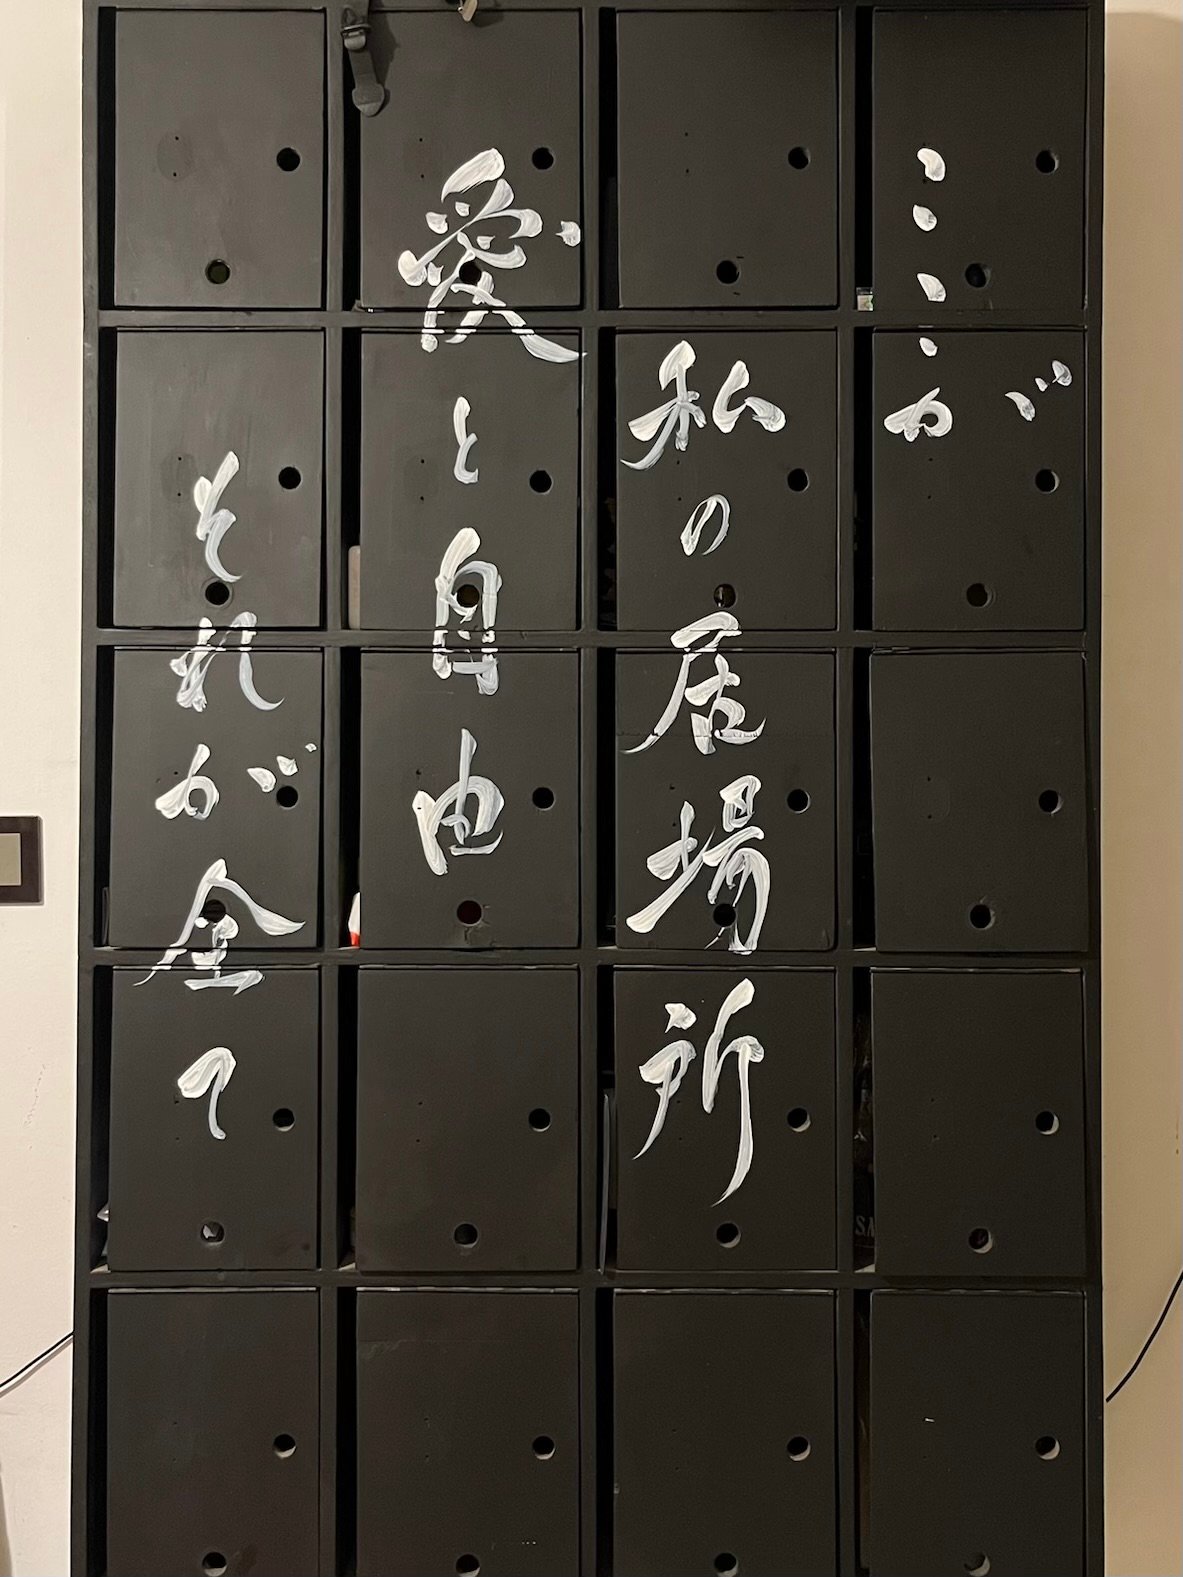 ここが
私の居場所
愛と自由
それが全て